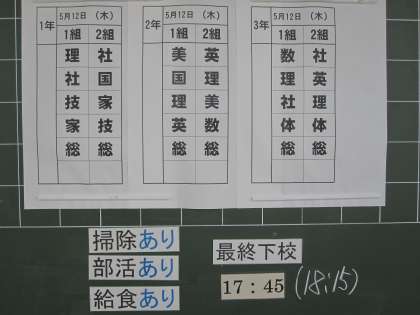 1年 5月12日 (木)
1組 2組
理 社
社 国
技 家
家 技
総 総
2年 5月12日 (木)
1組 2組
美 英
国 理
理 美
英 数
総 総
3年 5月12日 (木)
1組 2組
数 社
理 英
社 理
体 体
総 総
掃除あり
部活あり
給食あり
最終下校
17:45 (18:15)